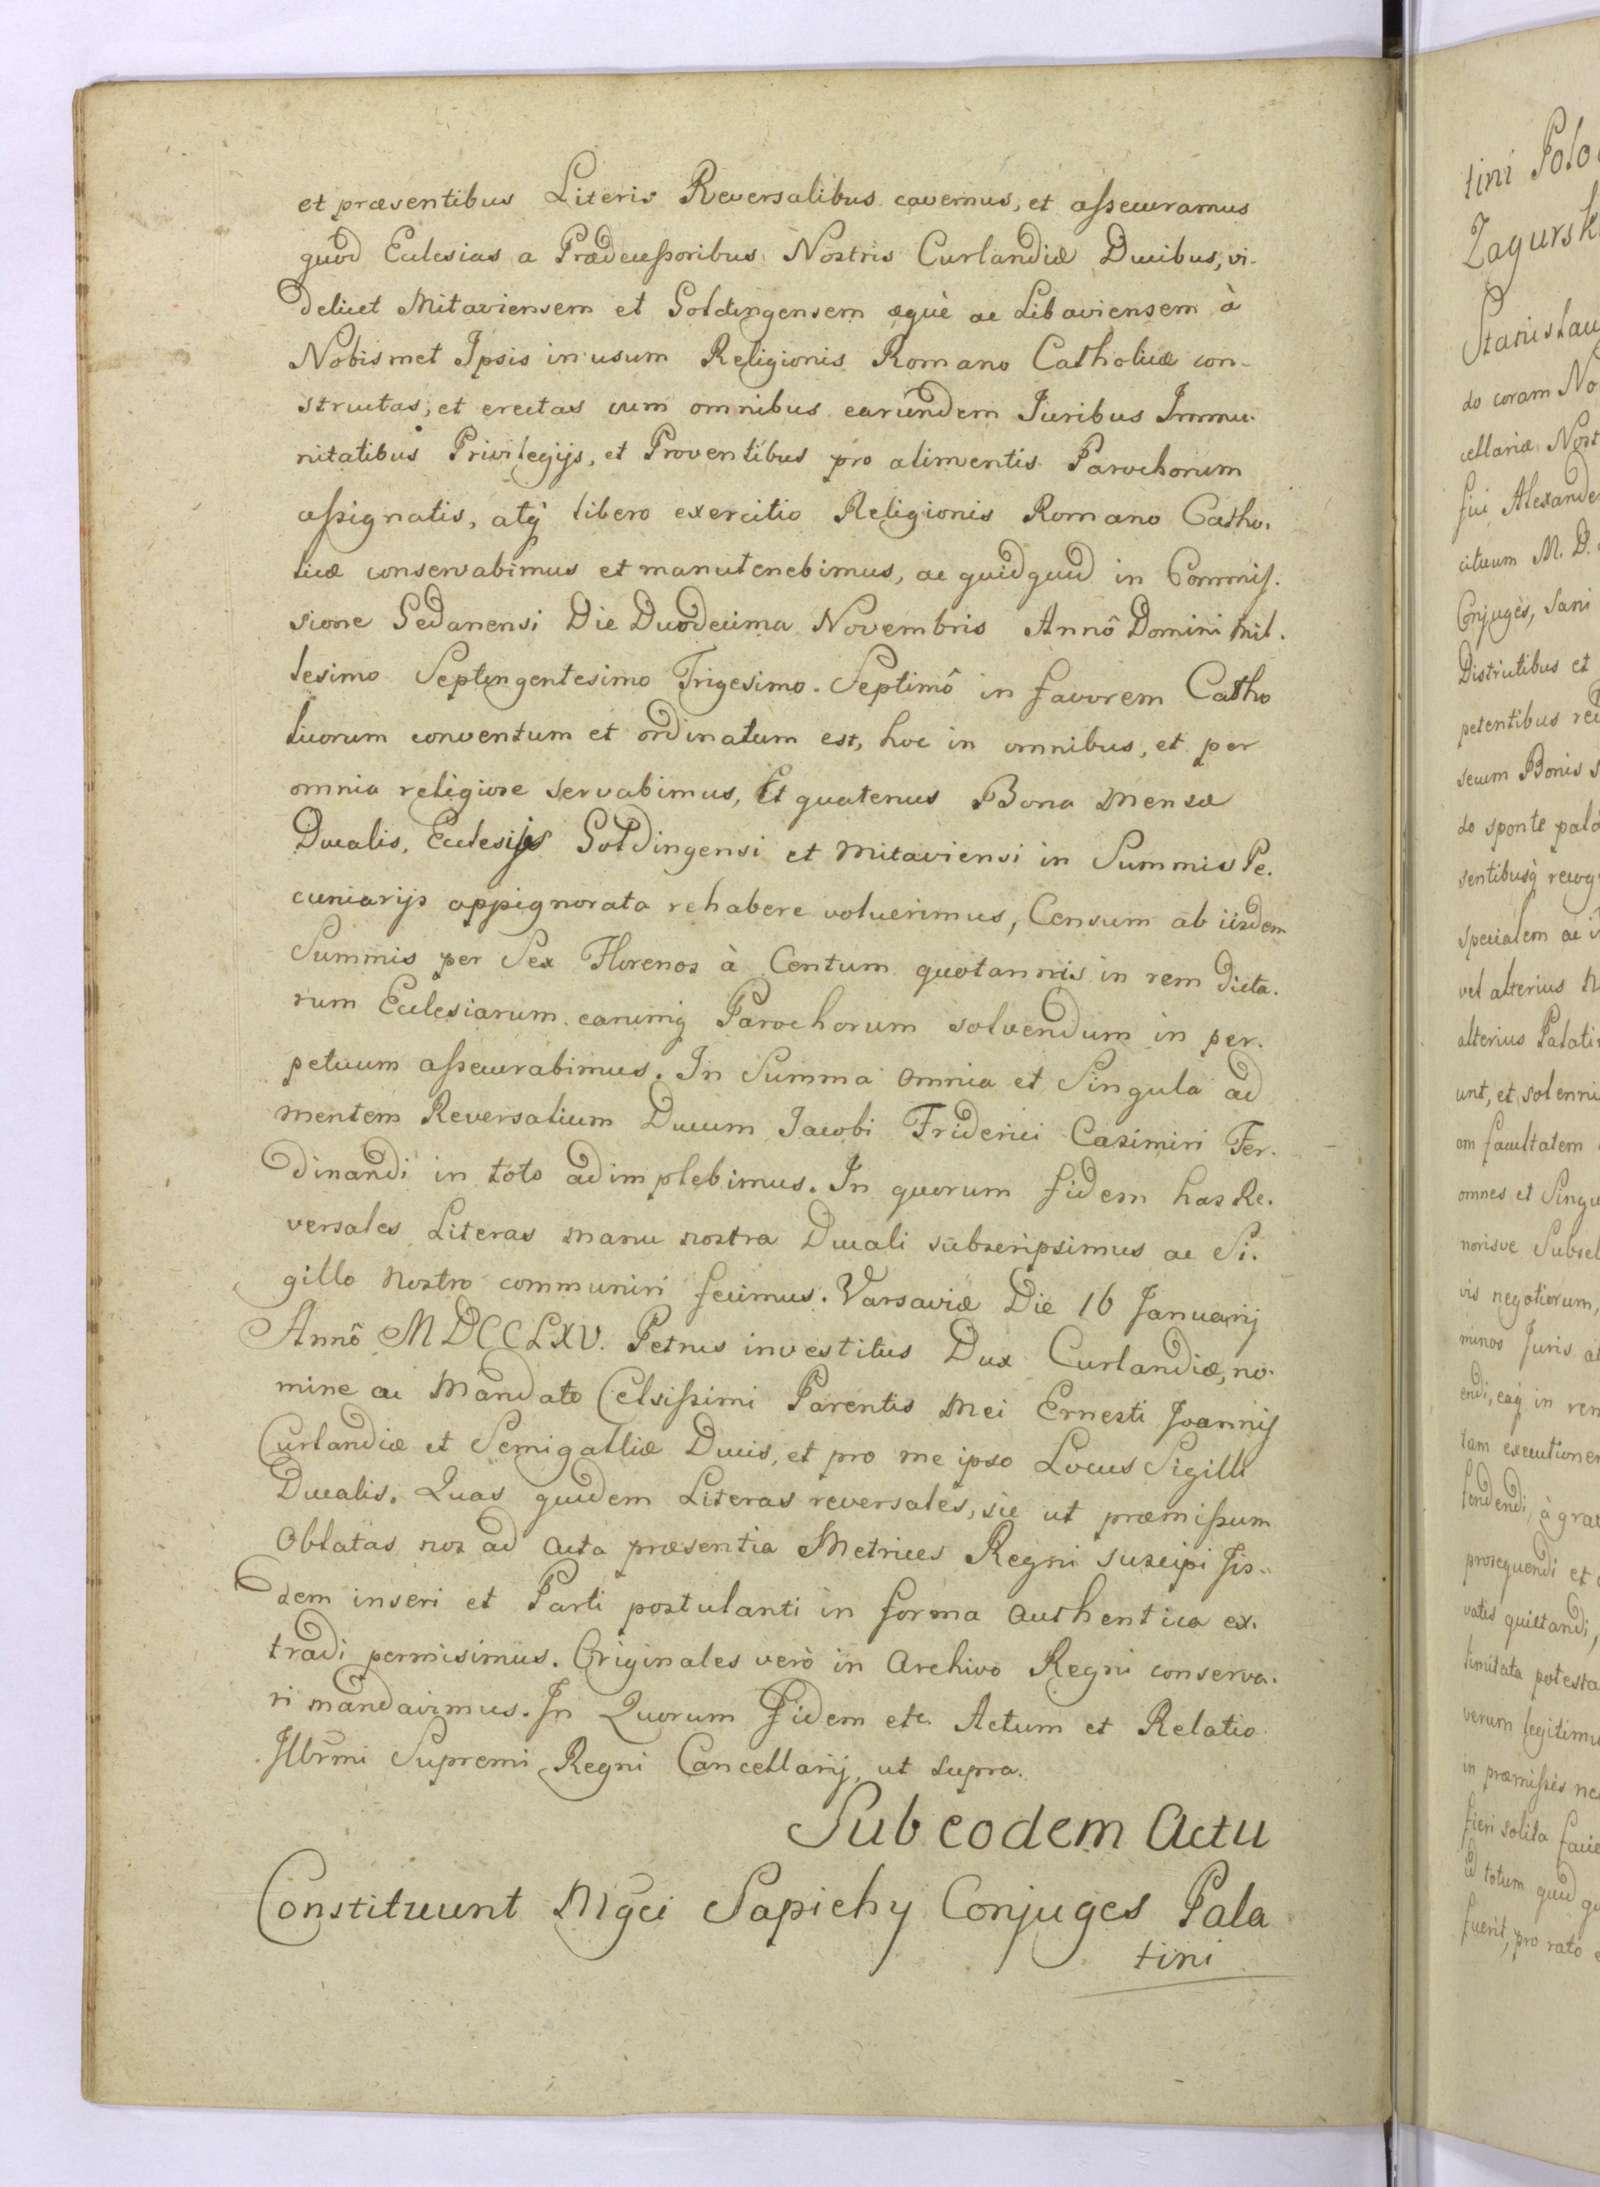 et præsentibus Literis Reversalibus cavemus, et assecuramus
quod Ecclesias a Prædecessoribus Nostris Curlandiæ Ducibus, vi-
delicet Mitaviensem et Goldingensem æquè ac Libaviensem à
Nobismet Ipsis in usum Religionis Romano Catholicæ con-
structas, et erectas cum omnibus earundem Iuribus Immu-
nitatibus Privilegijs, et Proventibus pro alimentis Parochorum
assignatis, atq̃ libero exercitio Religionis Romano Catho-
licæ conservabimus et manutenebimus, ac quidquid in Commis-
sione Gedanensi Die Duodecima Novembris Annô Domini Mil-
lesimo Septingentesimo Trigesimo Septimô in favorem Catho
licorum conventum et ordinatum est, hoc in omnibus, et per
omnia religiose servabimus, Et quatenus Bona Mensæ
Ducalis, Ecclesijs Goldingensi et Mitaviensi in Summis Pe-
cuniarijs oppignorata rehabere voluerimus, Censum ab iisdem
Summis per Sex Florenos à Centum quotannis in rem dicta-
rum Ecclesiarum earumq̃ Parochorum solvendum in per-
petuum assecurabimus. In Summa omnia et Singula ad
mentem Reversalium Ducum Jacobi Friderici Casimiri Fer-
dinandi in toto adimplebimus. In quorum fidem has Re-
versales Literas manu nostra Ducali subscripsimus ac Si-
gillo Nostro communiri fecimus. Varsaviæ Die 16 Januarij
Annô MDCCLXV. Petrus investitus Dux Curlandiæ, no-
mine ac Mandato Celsissimi Parentis Mei Ernesti Joannis
Curlandiæ et Semigalliæ Ducis, et pro me ipso Locus Sigilli
Ducalis. Quas quidem Literas reversales, sic ut præmissum
Oblatas nos ad acta præsentia Metrices Regni suscipi Iis-
dem inseri et Parti postulanti in forma authentica ex-
tradi permisimus. Originales verò in Archivo Regni conserva-
ri mandavimus. In Quorum Fidem etc. Actum et Relatio
Illr̃mi Supremi Regni Cancellarij, ut supra.
Sub eodem Actu
Constituunt Mgc̃i Sapiehy Conjuges Pala
tini
tini Polo
Zagursk
Stanislau
do coram No
cellariæ Nost
sui Alexande
cituum M. D.
Conjuges, sani
Districtibus et
petentibus
secum Bonis s
do sponte pala
sentibusq̃ recog
specialem ac
vel alterius
alterius Palati
unt, et solenni
om facultatem
omnes et Singu
norisve Subsel
vis negotiorum,
minos Juris
endi, eaq̃ in rem
tam executionem
tendendi, à gra
prosequendi et
vatis quittandi,
limitata potesta
verum legitimu
in præmissis ne
fieri solita
totum quid
fuerit, pro rato